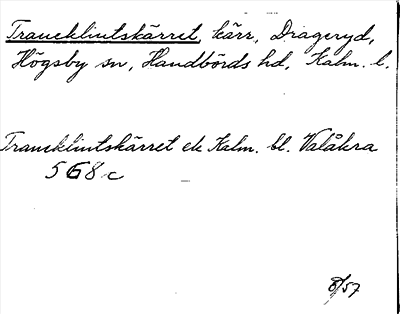 Traneklintskärret, kärr, Drageryd,
Högsby sn, Handbörds hd, Kalm. l.
Traneklintskärret ek Kalm. bl. Valåkra
568 c
8/57